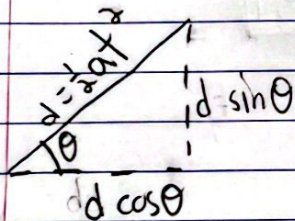 d = ½at²
d sinθ
θ
d cosθ